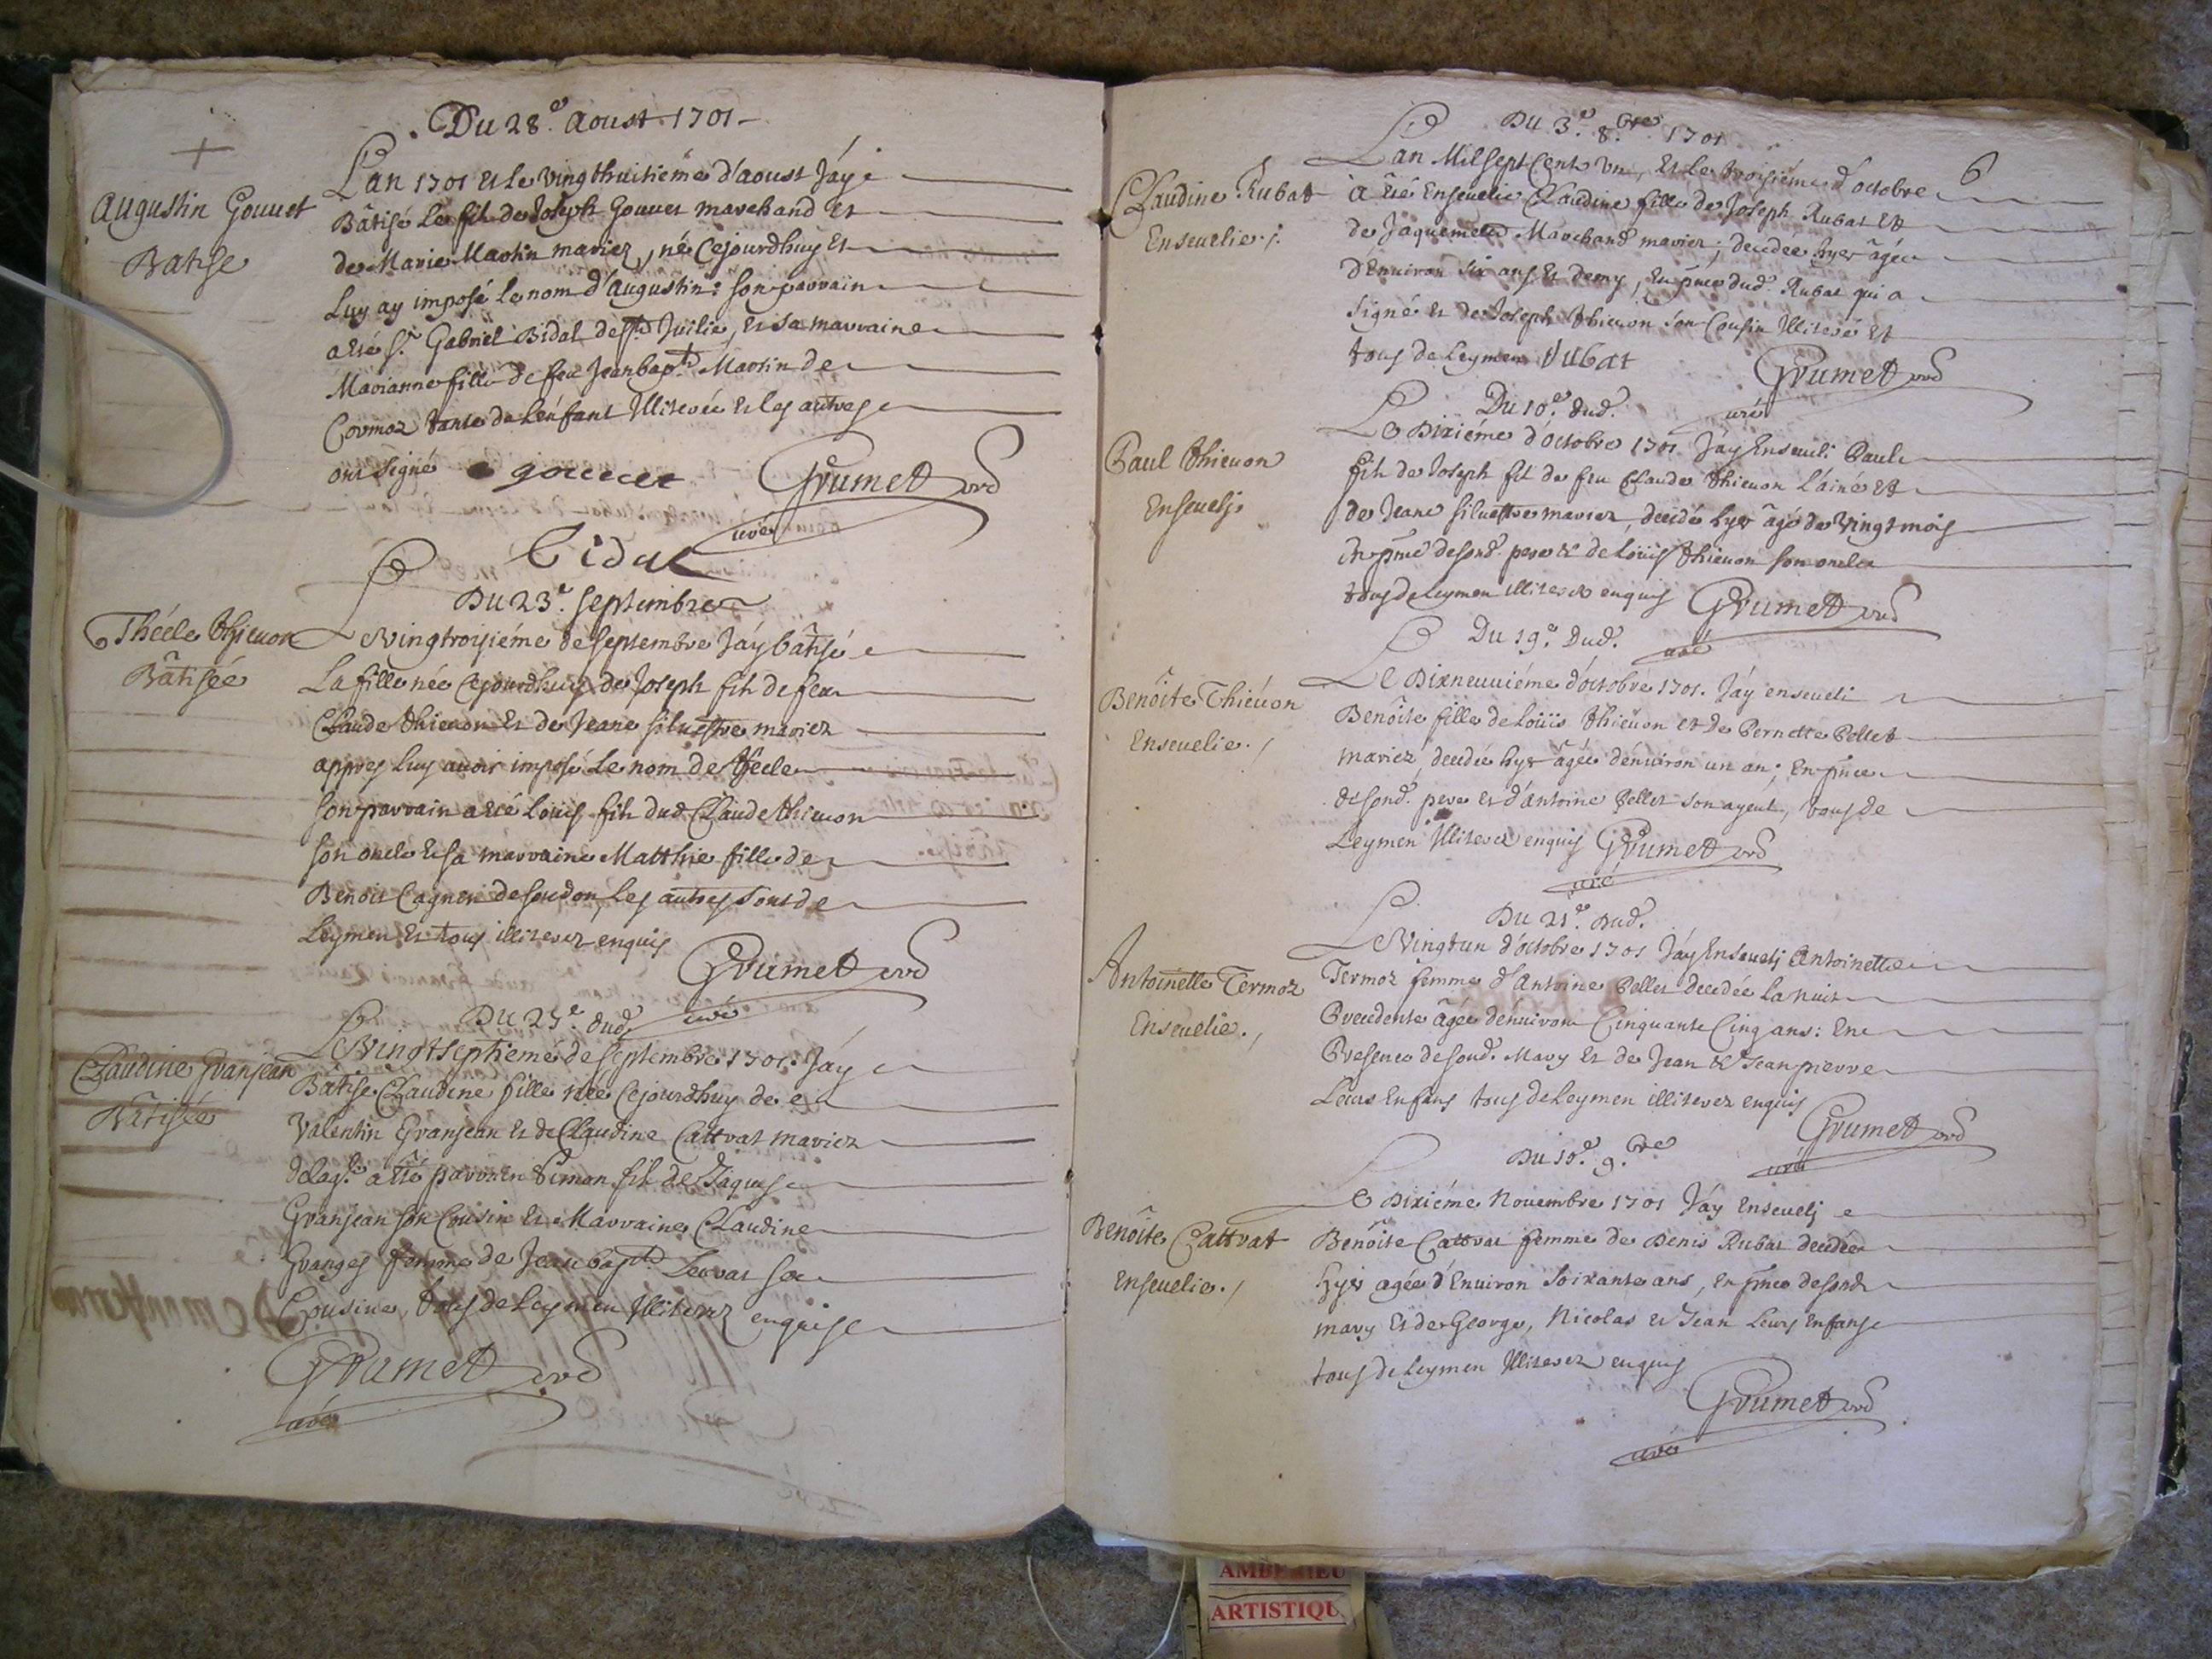 Du 28.e Aoust 1701
+
Augustin Gouuet
Batisé
L'an 1701 et le vingthuitiéme d'aoust J'áy
Bâtisé le fils de Joseph Gouuet marchand et
de Marie Martin mariez, né Cejourdhuy et
Luy ay imposé le nom d'Augustin: son parrain
a eté Sr. Gabriel Bidal de St. Juilie, et sa marraine
Marianne fille de feu Jeanbapt.e Martin de
Cormoz tante de Lénfant Illiterée et les autres
ont signé gouuet Grumet
curé
Bidal
Du 23.e Septembre
Théele Thieuon
Bâtisée
Le Vingtroisiéme de Septembre J'áy bâtisé
La fille née Cejourdhuy de Joseph fils de feu
Claude thieuon et de Jeane Siluestre mariez
appres luy auoir imposé le nom de théele
son parrain a eté Loüis fils dud Claude thieuon
son oncle et sa marraine Matthie fille de
Benoit Cagnin de Soudon, les autres sont de
Leymen et tous illiterez enquis
Grumet
curé
Du 27.e dud.
Claudine Granjean
Bâtisée
Le Vingtseptieme de Septembre 1701. J'áy
Bâtisé Claudine fille née Cejourdhuy de
Valentin Granjean et de Claudine Cattrat mariez
a été parrain Simon fils de Jaques
Granjean son Cousin et Marraine Claudine
Granges femme de Jeanbapt.e sa
Cousine, tous de Leymen Illiterez enquis
Grumet
curé
6
Du 3.e 8.bre 1701
Claudine Rubat
Enseuelie./.
L'an Mil Sept Cent Un, et le troisiéme d'octobre
à eté Enseuelie Claudine fille de Joseph Rubat et
de Jaquemete Marchand mariez; decedée hyer âgée
D'Enuiron six ans et demy, En pnce dud. Rubat qui a
signé et de Joseph thieuon son Cousin Illiteré et
tous de Leymen Rubat
Grumet
curé
Du 10.e dud.
Paul thieuon
Enseuelj
Le Dixiéme d'octobre 1701 J'áy Enseueli Paul
fils de Joseph fils de feu Claude thieuon L'ainé et
de Jeane Siluestre mariez, decedé hyer âgé de Vingt mois
En pnce desond. pere et de Loüis thieuon son oncle
tous de Leymen illiterez enquis Grumet
curé
Du 19.e Dud.
Benoîte Thieuon
Enseuelie./
Le Dixneuuiéme d'octobre 1701. J'áy enseueli
Benoîte fille de Loüis thieuon et de Pernette Pellet
mariez, decedée hyer âgée d'énuiron un an; En pnce
desond. pere et d'Antoine Pellet son ayeul, tous de
Leymen Illiterez enquis Grumet
curé
Du 21.e Dud.
Antoinette Termoz
Enseuelie./
Le Vingtun d'octobre 1701 J'áy Enseuelj Antoinette
Termoz femme d'Antoine Pellet decedée la nuit
Precedente âgée denuiron Cinquante Cinq ans: En
Presence desond. Mary et de Jean & Jeanpierre
Leurs Enfans tous de Leymen illiterez enquis
Grumet
curé
Du 10.e 9.bre
Benoîte Cattrat
Enseuelie./
Le Dixiéme Nouembre 1701 J'áy Enseuelj
Benoîte Cattrat femme de Denis Rubat decedée
hyer agée d'Enuiron Soixante ans, En pnce desond
mary et de George, Nicolas et Jean Leurs Enfans
tous de Leymen Illiterez enquis
Grumet
curé
AMBERIEU
ARTISTIQU